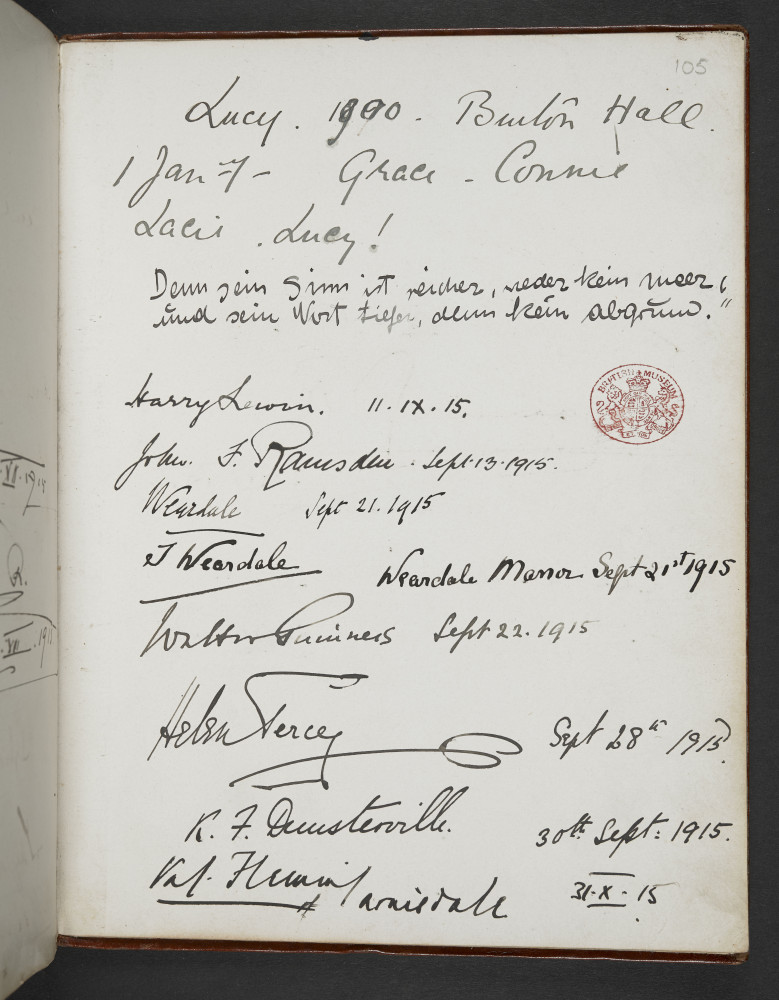 105
Lucy. 1900. Burton Hall.
1 Jan - 7 - Grace - Connie
Lacis. Lucy!
Denn sein Sinn ist reicher, weder kein meer,
und sein Wort tiefer, denn kein abgrund."
BRITISH MUSEUM
Harry Lewin. 11.IX.15.
John. F. Ramsden. Sept. 13. 1915.
Weardale Sept 21. 1915
I Weardale Weardale Manor Sept 21st 1915
Walter Guinness Sept 22. 1915
Helen Sept 28th 1915.
K. F. Dunsterville. 30th Sept: 1915.
Val. Fleming Arnisdale 31-X-15